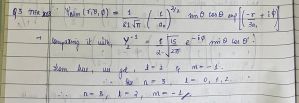 Q3 Ψnlm (r,θ,φ) = 1/(81√π) (1/a₀)^3/2 sinθ cosθ exp[-r/3a₀ + iφ]
→ Comparing it with, Y₂⁻¹ = 1/2 √15/√2π e^-iφ sinθ cosθ
from here, we get l = 2, m = -1.
for n=3, l = 0,1,2
∴ n=3, l=2, m=-1